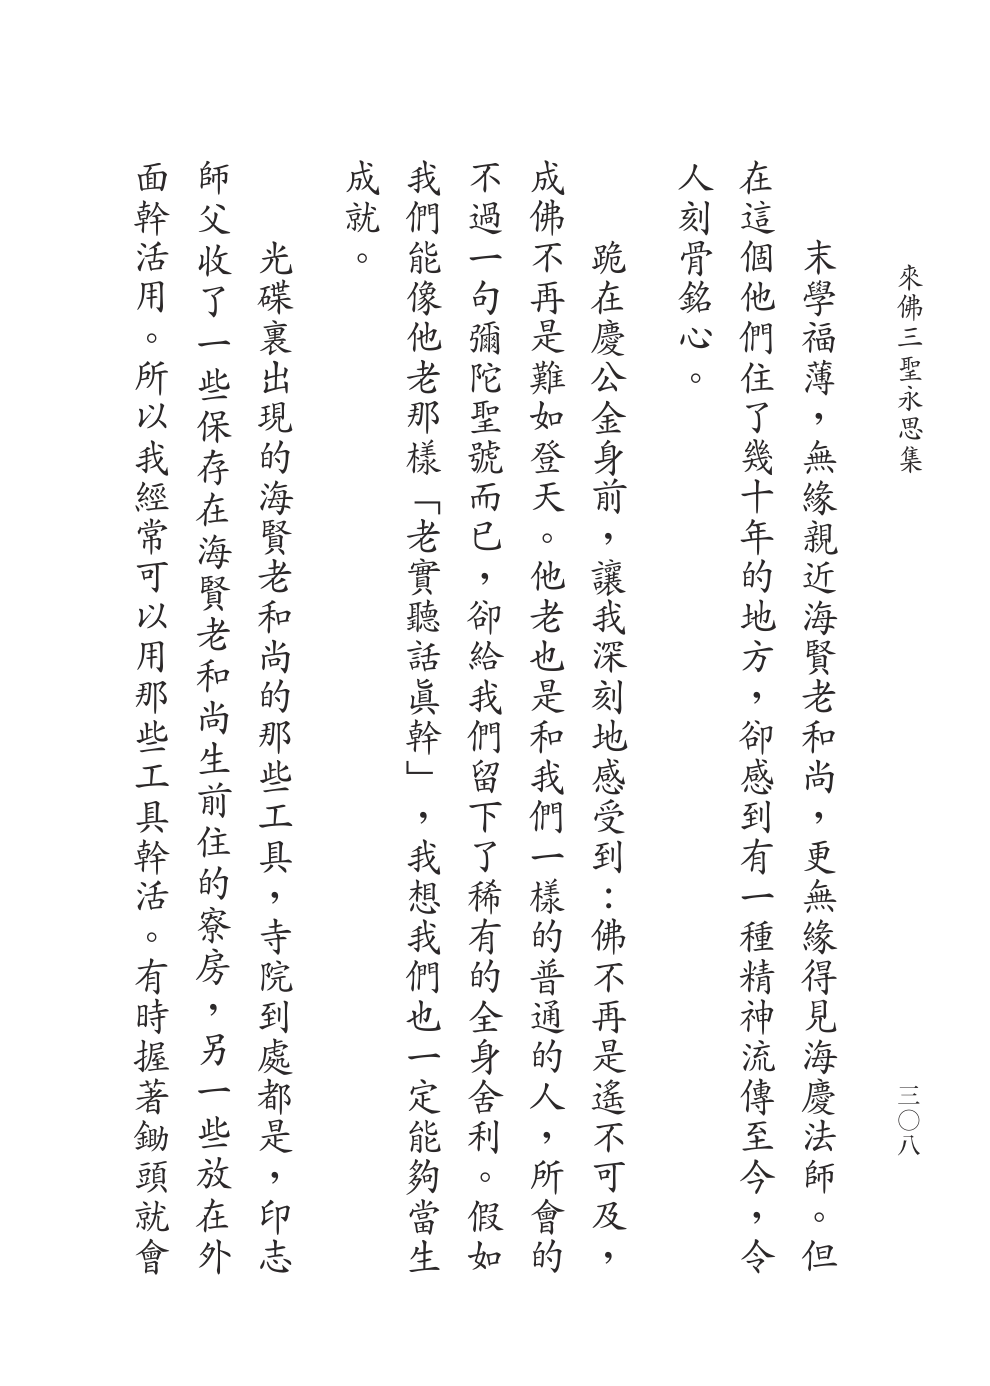 來佛三聖永思集
三〇八
末學福薄，無緣親近海賢老和尚，更無緣得見海慶法師。但
在這個他們住了幾十年的地方，卻感到有一種精神流傳至今，令
人刻骨銘心。
跪在慶公金身前，讓我深刻地感受到：佛不再是遙不可及，
成佛不再是難如登天。他老也是和我們一樣的普通的人，所會的
不過一句彌陀聖號而已，卻給我們留下了稀有的全身舍利。假如
我們能像他老那樣「老實聽話眞幹」，我想我們也一定能夠當生
成就。
光碟裏出現的海賢老和尚的那些工具，寺院到處都是，印志
師父收了一些保存在海賢老和尚生前住的寮房，另一些放在外
面幹活用。所以我經常可以用那些工具幹活。有時握著鋤頭就會